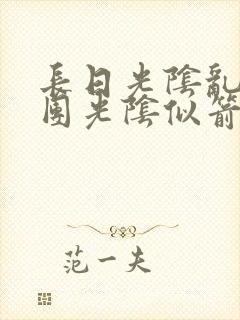 長日光陰亂
團光陰似箭
范一夫